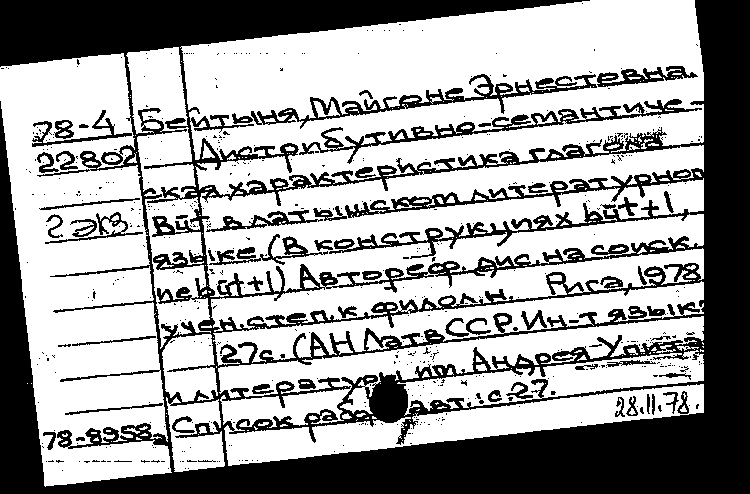 78-4 Бейтыня, Майгоне Эрнестовна.
22802 Дистрибутивно-семантиче-
ская характеристика глагола
2 экз būt в латышском литературном
языке. (В конструкциях būt+1,
nebūt+1) Автореф. дис. на соиск.
учен. степ. к. филол. н. Рига, 1978
27с. (АН ЛатвССР. Ин-т язык
и литературы им. Андрея Упита
78-8958а Список работ авт.: с. 27.
28.11.78.